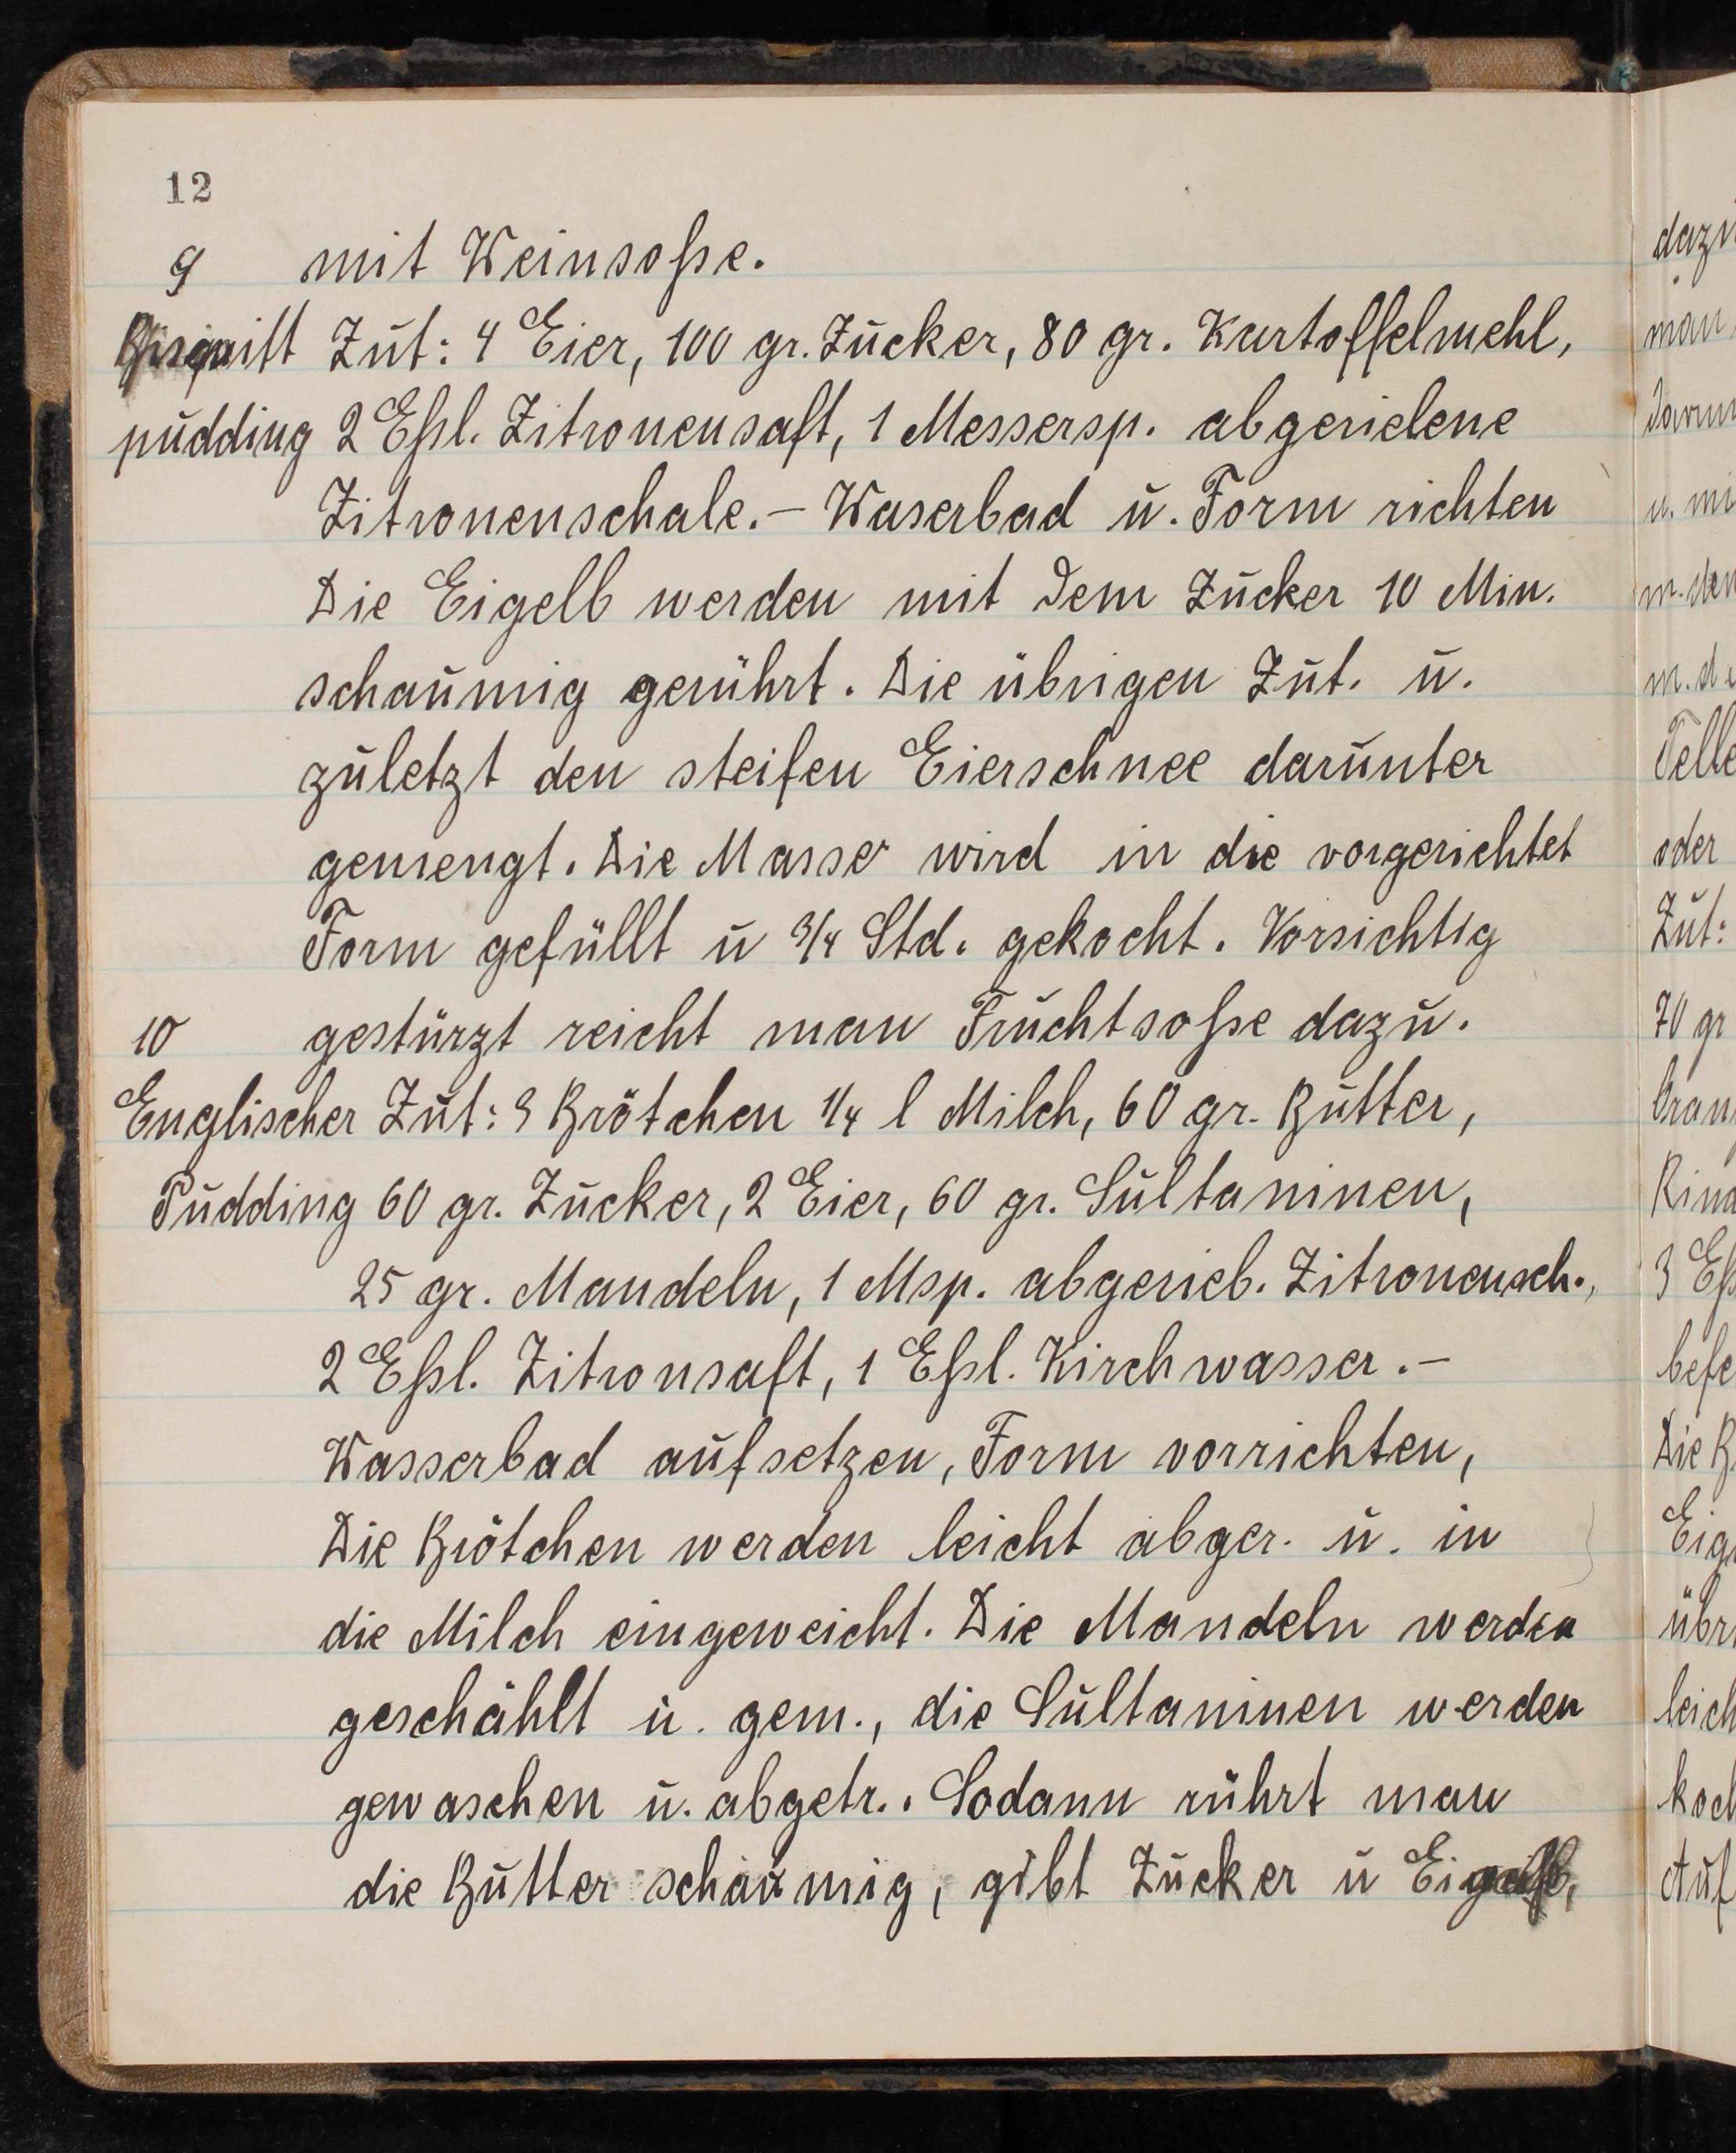 12
9 mit Weinsoße.
Bisquitt Zut: 4 Eier, 100 gr. Zucker, 80 gr. Kartoffelmehl,
pudding 2 Eßl. Zitronensaft, 1 Messersp. abgerielene
Zitronenschale. – Waserbad u. Form richten
Die Eigelb werden mit dem Zucker 10 Min.
schaumig gerührt. Die übrigen Zut. u.
zuletzt den steifen Eierschnee darunter
gemengt. Die Masse wird in die vorgerichtet
Form gefüllt u 3/4 Std. gekocht. Vorsichtig
10 gestürzt reicht man Fruchtsoße dazu.
Englischer Zut: 3 Brötchen 1/4 l Milch, 60 gr. Butter,
Pudding 60 gr. Zucker, 2 Eier, 60 gr. Sultaninen,
25 gr. Mandeln, 1 Msp. abgerieb. Zitronensch.,
2 Eßl. Zitronsaft, 1 Eßl. Kirchwasser. –
Wasserbad aufsetzen, Form vorrichten,
Die Brötchen werden leicht abger. u. in
die Milch eingeweicht. Die Mandeln werden
geschählt u. gem., die Sultaninen werden
gewaschen u. abgetr.. Sodann rührt man
die Butter schaumig, gibt Zucker u Eigelb,
dazu
man
u. mi
m. den
m. d
Telle
oder
Zut:
70 gr
Die B
übri
leich
koch
Auf